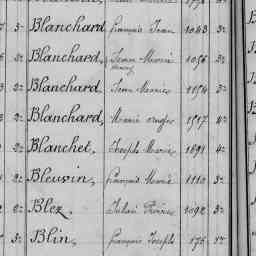 3e Blanchard, François Jean 1043 3e
2e Blanchard, Jean Marie 1056 3e
2e Blanchard, Jean Marie 1154 3e
2e Blanchard, Marie 1517 4e
2e Blanchet, Joseph Marie 1691 4e
2e Bleuvin, François Marie 1110 3e
2e Blez, Julien 1092 3e
3e Blin, François Joseph 175